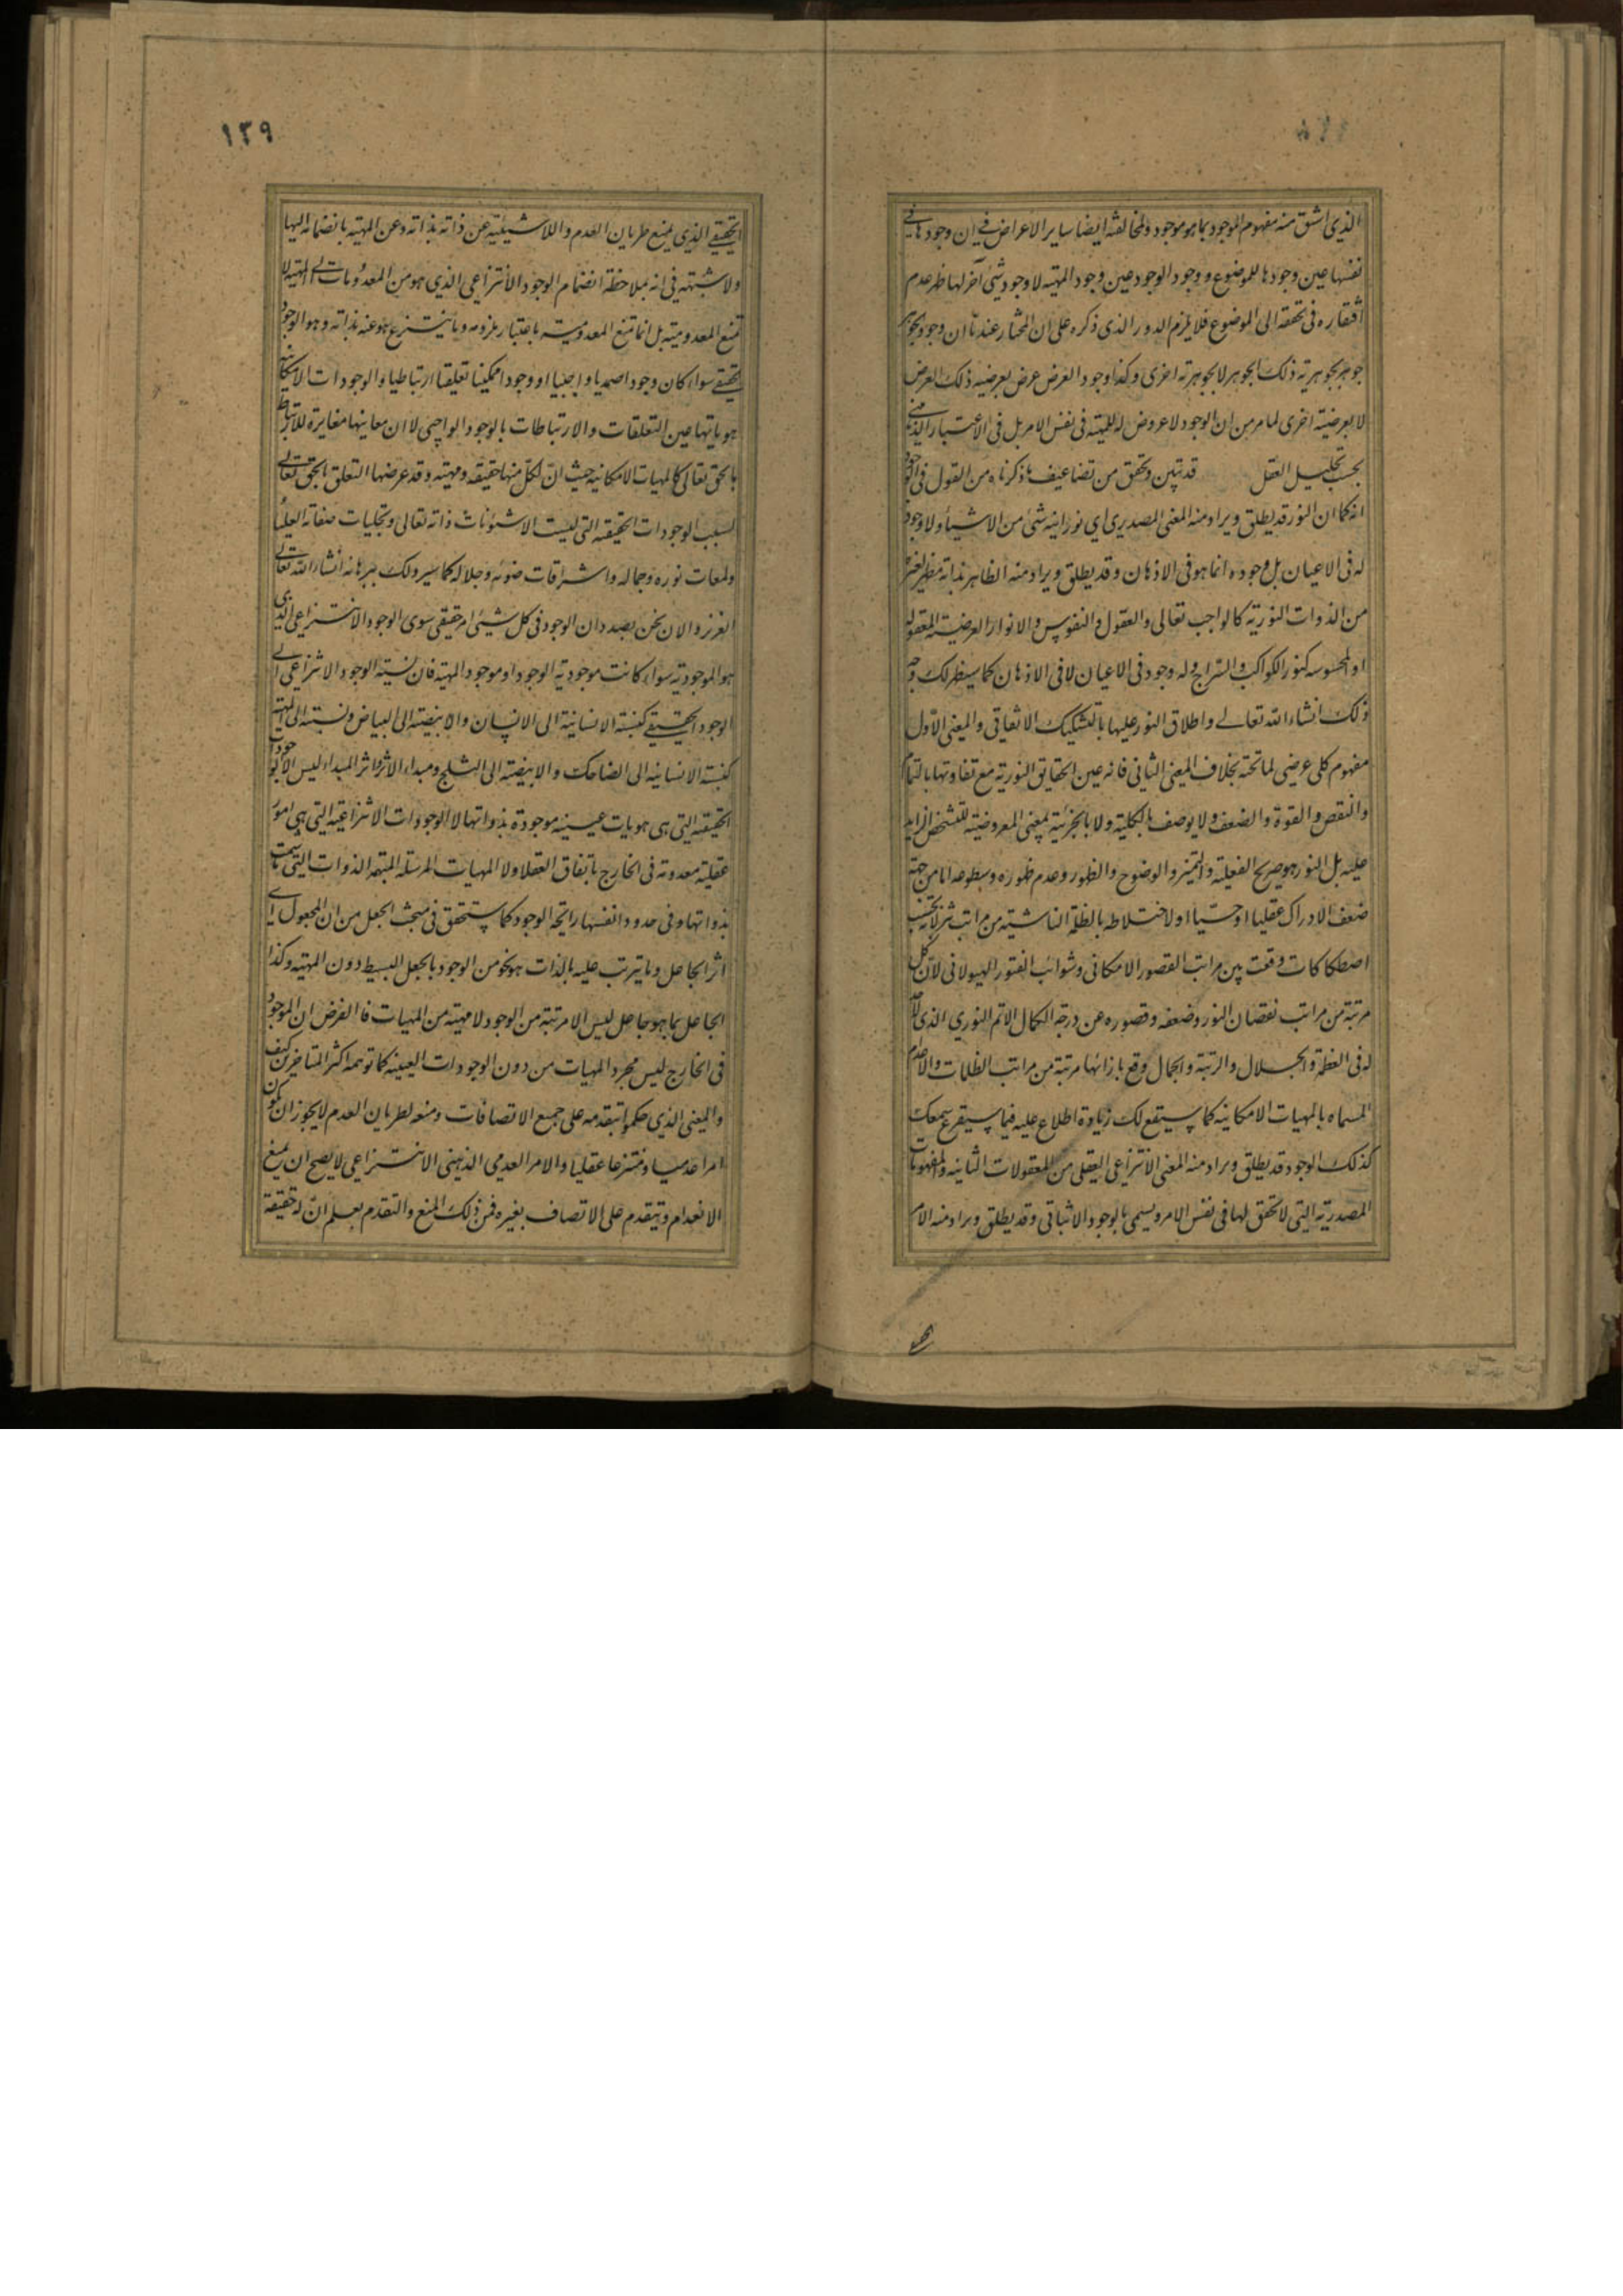 الذی اشتق منه مفهوم الموجود بما هو موجود ولمخالفته ایضا سایر الاعراض فی ان وجودها فی
نفسها عین وجودها للموضوع و وجود الوجود عین وجود المهیة لا وجود شئ آخر لها ظهر عدم
افتقاره فی تحققه الی الموضوع فلا یلزم الدور الذی ذکره علی ان المختار عندنا ان وجود الجوهر
جوهر بجوهریة ذلک الجوهر لا بجوهریة اخری وکذا وجود العرض عرض بعرضیة ذلک العرض
لا بعرضیة اخری لما مر من ان الوجود لا عروض له للمهیة فی نفس الامر بل فی الاعتبار الذهنی
بحسب تحلیل العقل قد تبین وتحقق من تضاعیف ما ذکرناه من القول فی الوجود
انه کما ان النور قد یطلق ویراد منه المعنی المصدری ای نورانیة شئ من الاشیاء ولا وجود
له فی الاعیان بل وجوده انما هو فی الاذهان وقد یطلق ویراد منه الظاهر بذاته مظهر لغیره
من الذوات النوریة کالواجب تعالی والعقول والنفوس والانوار العرضیة المعقولة
او المحسوسه کنور الکواکب والسراج وله وجود فی الاعیان لا فی الاذهان کما سیظهر لک وجه
ذلک انشاء الله تعالی واطلاق النور علیها بالتشکیک الاتفاقی والمعنی الاول
مفهوم کلی عرضی لما تحته بخلاف المعنی الثانی فانه عین الحقایق النوریة مع تفاوتها بالتمام
والنقص والقوة والضعف ولا یوصف بالکلیة ولا بالجزئیة بمعنی المعروضیة للتشخص الزاید
علیه بل النور هو صریح الفعلیة والتمیز والوضوح والظهور وعدم ظهوره وسطوعه اما من جهة
ضعف الادراک عقلیا او حسیا او لاختلاطه بالظلة الناشیة من مراتب تنزلاته بحسب
اصطکاکات وقعت بین مراتب القصور الامکانی وشوائب الفتور الهیولانی لان کل
مرتبة من مراتب نقصان النور وضعفه وقصوره عن درجة الکمال الاتم النوری الذی لا حد
له فی العظمة والجلال والرتبة والجمال وقع بازائها مرتبة من مراتب الظلمات والاعدام
المسماه بالمهیات الامکانیه کما سیقع لک زیادة اطلاع علیه فیما سیقرع سمعک
کذلک الوجود قد یطلق ویراد منه المعنی الانتزاعی العقلی من المعقولات الثانیه والمفهومات
المصدریة التی لا تحقق لها فی نفس الامر ویسمی بالوجود الاثباتی وقد یطلق ویراد منه الامر
١٣٩
الحقیقی الذی یمنع طریان العدم واللاشیئیة عن ذاته بذاته وعن المهیة بانضمامه الیها
ولا شبهة فی انه بملاحظة انضمام الوجود الانتزاعی الذی هو من المعدومات الی المهیة لا
تمنع المعدومیة بل انما تمنع المعدومیة باعتبار ملزومه وما ینتزع هو عنه بذاته وهو الوجود
الحقیقی سواء کان وجودا صمدیا واجبیا او وجودا ممکنیا تعلقیا ارتباطیا والوجودات الامکانیة
هویاتها عین التعلقات والارتباطات بالوجود الواجبی لا ان معانیها مغایرة للارتباط
بالحق تعالی کالمهیات الامکانیه حیث ان لکل منها حقیقة ومهیة وقد عرضها التعلق بالحق تعالی
بسبب الوجودات الحقیقه التی لیست الا شئونات ذاته تعالی وتجلیات صفاته العلیا
ولمعات نوره وجماله واشراقات ضوئه وجلاله کما سیرد لک برهانه انشاء الله تعالی
العزیز والان نحن بصدد ان الوجود فی کل شئ امر حقیقی سوی الوجود الانتزاعی الذی
هو الموجودیة سواء کانت موجودیة الوجود او موجود المهیة فان نسبة الوجود الانتزاعی الی
الوجود الحقیقی کنسبة الانسانیة الی الانسان والابیضیة الی البیاض ونسبته الی المهیة
کنسبة الانسانیه الی الضاحک والابیضیة الی الثلج ومبداء الاثر واثر المبداء لیس الا الوجودات
الحقیقیة التی هی هویات عینیه موجودة بذواتها لا الوجودات الانتزاعیة التی هی امور
عقلیة معدومة فی الخارج باتفاق العقلاء ولا المهیات المرسلة المبهمة الذوات التی ما شمت
بذواتها وفی حدود انفسها رایحة الوجود کما ستحقق فی مبحث الجعل من ان المجعول ای
اثر الجاعل وما یترتب علیه بالذات هو نحو من الوجود بالجعل البسیط دون المهیة وکذا
الجاعل بما هو جاعل لیس الا مرتبة من الوجود لا مهیة من المهیات فالغرض ان الموجود
فی الخارج لیس مجرد المهیات من دون الوجودات العینیه کما توهمه اکثر المتاخرین کیف
والمعنی الذی حکموا بتقدمه علی جمیع الاتصافات ومنعه لطریان العدم لا یجوز ان یکون
امرا عدمیا ومنتزعا عقلیا والامر العدمی الذهنی الانتزاعی لا یصح ان یمنع
الانعدام ویتقدم علی الاتصاف بغیره فمن ذلک المنع والتقدم یعلم ان له حقیقة